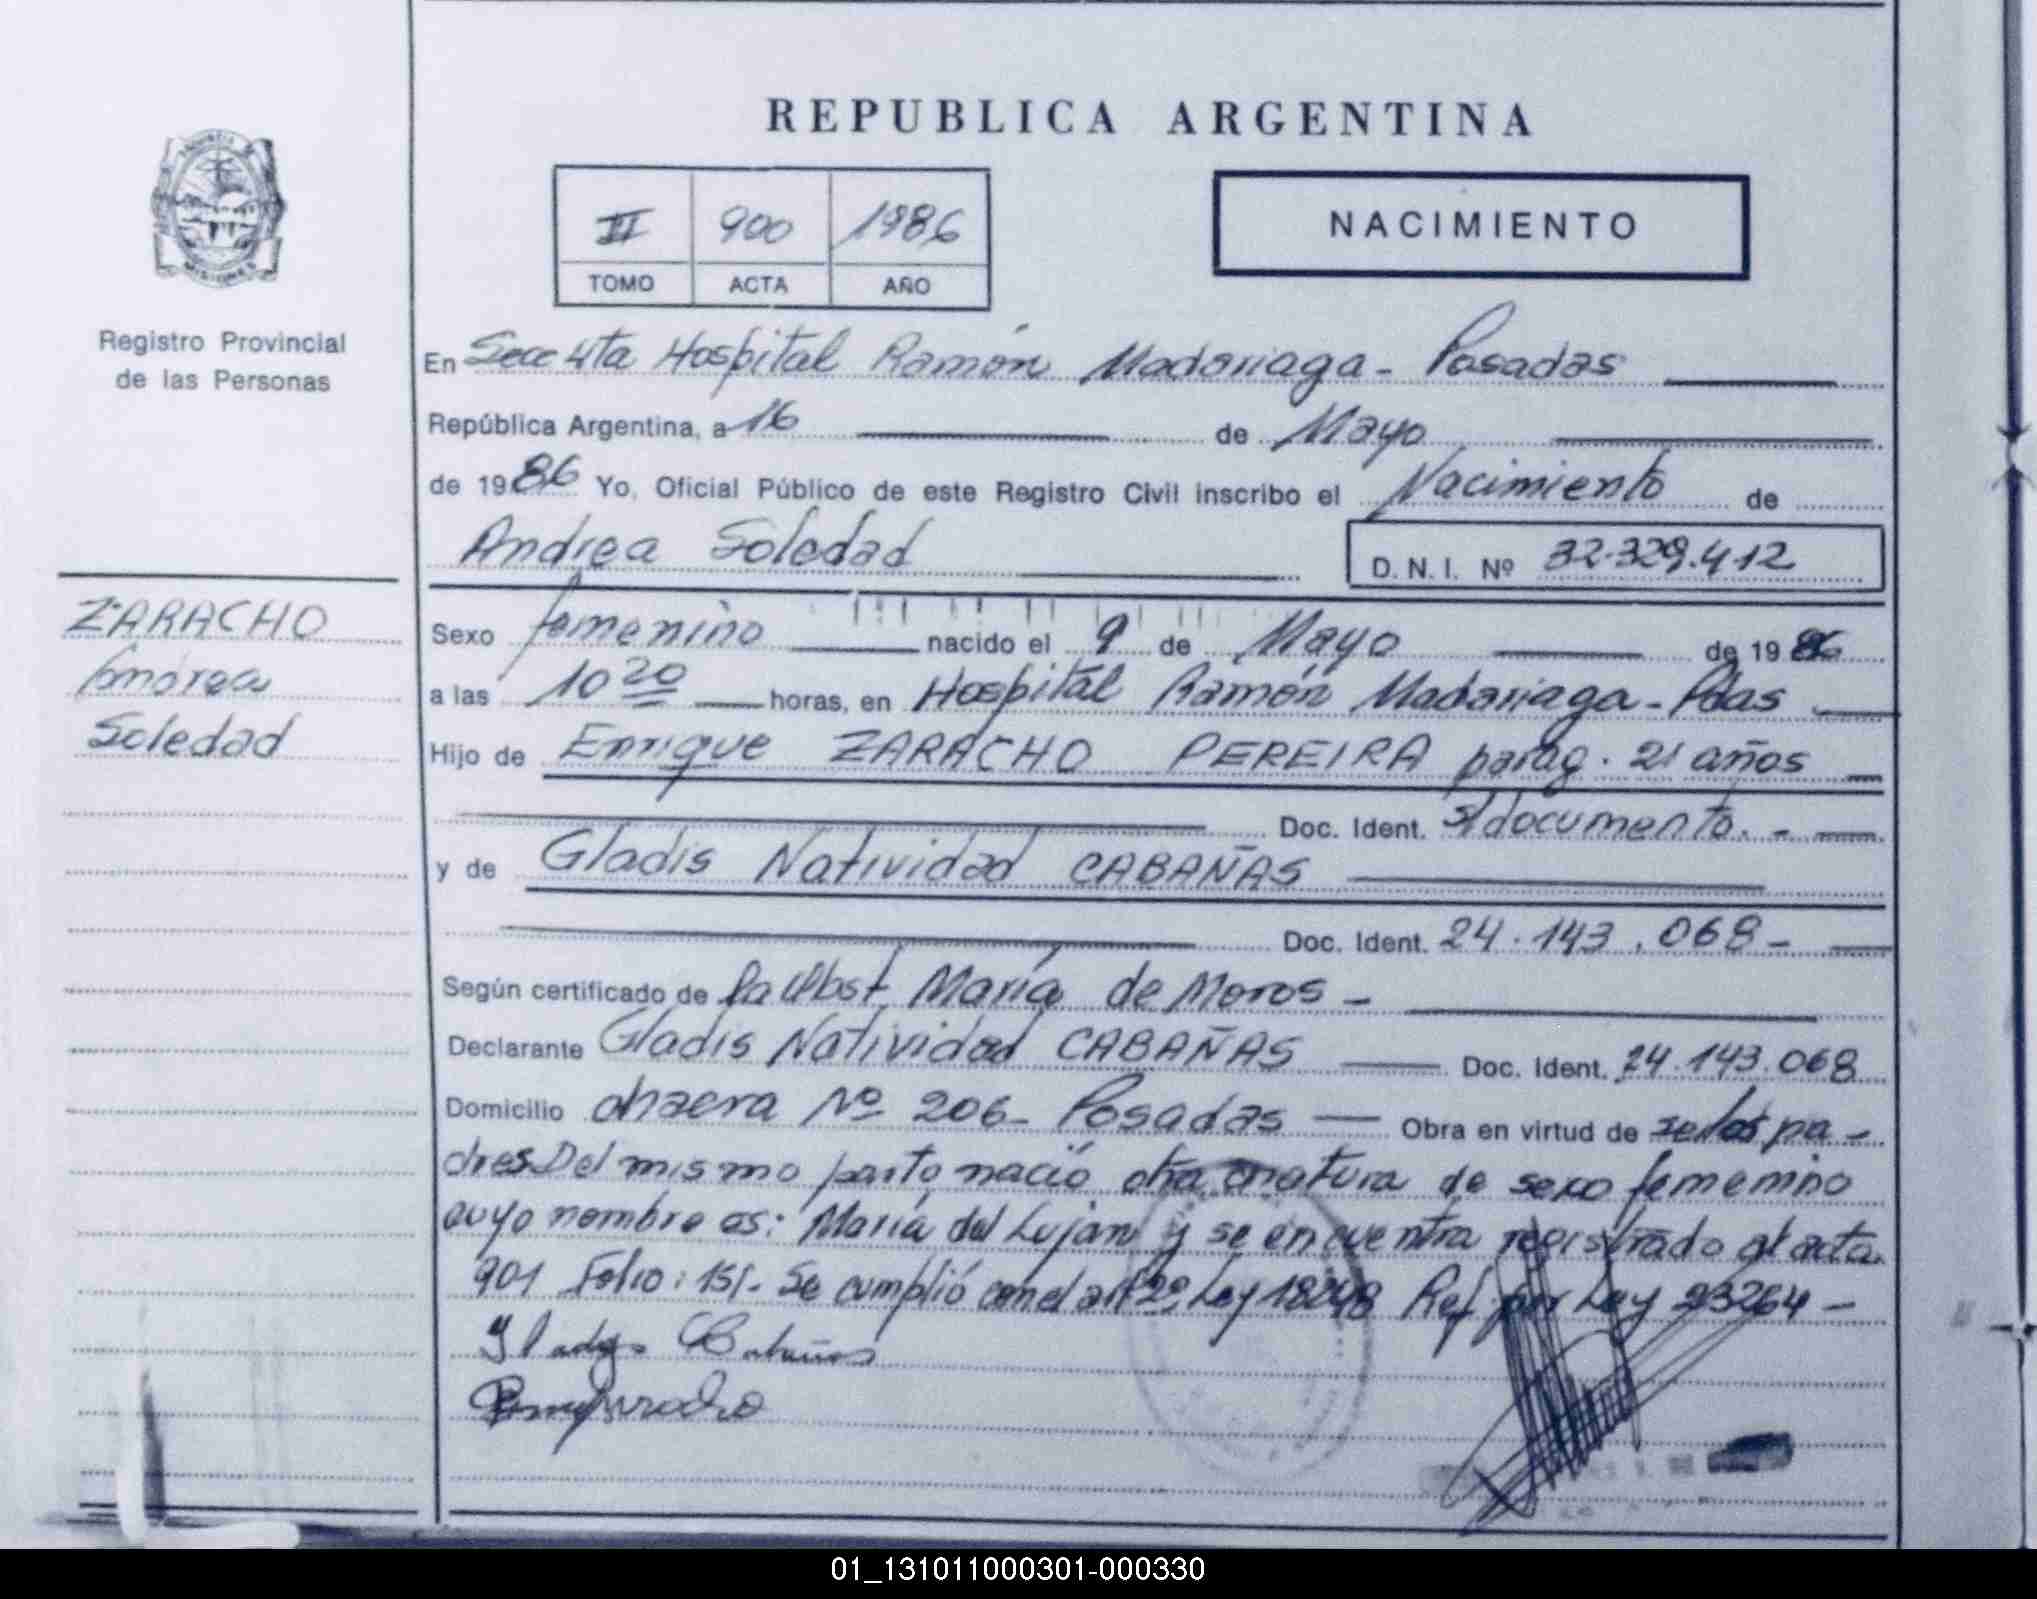 REPUBLICA ARGENTINA
II 900 1986
TOMO ACTA AÑO
NACIMIENTO
PROVINCIA DE
MISIONES
Registro Provincial
de las Personas
ZARACHO
Andrea
Soledad
En Secc 4ta Hospital Ramón Madariaga - Posadas
República Argentina, a 16 de Mayo
de 1986 Yo, Oficial Público de este Registro Civil inscribo el Nacimiento de
Andrea Soledad D. N. I. Nº 32.329.412
Sexo femenino nacido el 9 de Mayo de 1986
a las 10 20 horas, en Hospital Ramón Madariaga - Pdas
Hijo de Enrique ZARACHO PEREIRA parag. 21 años
Doc. Ident. s/documento. -
y de Gladis Natividad CABAÑAS
Doc. Ident. 24.143.068 -
Según certificado de la Obst. María de Moros -
Declarante Gladis Natividad CABAÑAS Doc. Ident. 24.143.068
Domicilio chacra Nº 206 - Posadas Obra en virtud de ser los pa -
dres. Del mismo parto nació otra criatura de sexo femenino
cuyo nombre es: María del Lujan y se encuentra registrado al acta
901 Folio: 151. - Se cumplió con el art 2º Ley 18248 Ref. por Ley 23264 -
Gladys Cabañas
01_131011000301-000330